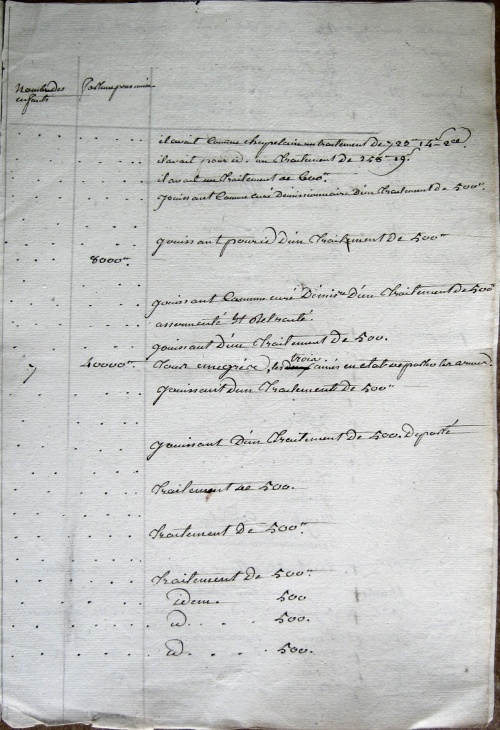 Nombre des enfants
fortune présumée
il avait comme chapelain un traitement de 728# 14s 2d.
il avait pour id. un Traitement de 258# 19s
il avait un Traitement de 600#.
jouissant Comme curé Démissionnaire D'un Traitement de 500#.
jouissant pour id D'un Traitement de 500#
8000#
jouissant Comme curé Démisre D'un Traitement de 500#
assermenté et Retracté.
jouissant D'un Traitement de 500.
7 40000#. Tous émigrés, les trois ainés en etat de porter les armes.
jouissant d'un Traitement de 500#
jouissant D'un Traitement De 500. Deporté
Traitement de 500.
Traitement De 500#
Traitement de 500#
idem. 500
id. 500.
id. 500.